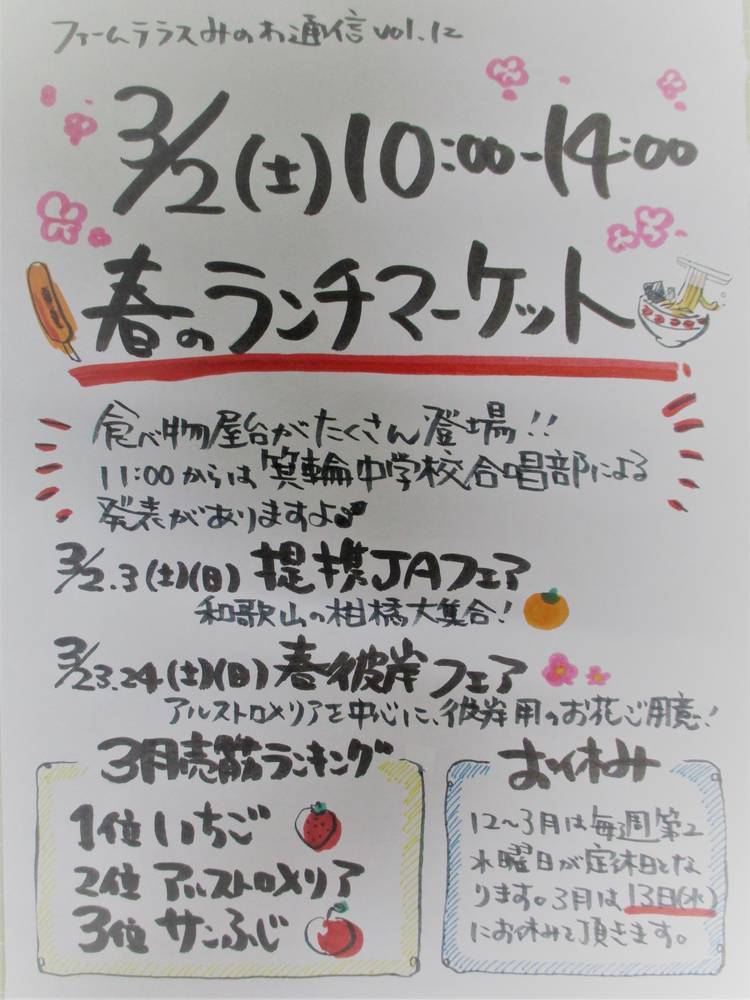 ファームテラスみのわ通信 vol.12
3/2(土)10:00-14:00
春のランチマーケット
食べ物屋台がたくさん登場!!
11:00からは箕輪中学校合唱部による
発表がありますよ♪
3/2.3(土)(日) 提携JAフェア
和歌山の柑橘大集合!
3/23.24(土)(日) 春彼岸フェア
アルストロメリアを中心に、彼岸用のお花ご用意!
3月売筋ランキング
1位 いちご
2位 アルストロメリア
3位 サンふじ
お休み
12〜3月は毎週第2
水曜日が定休日とな
ります。3月は13日(水)
にお休みて頂きます。